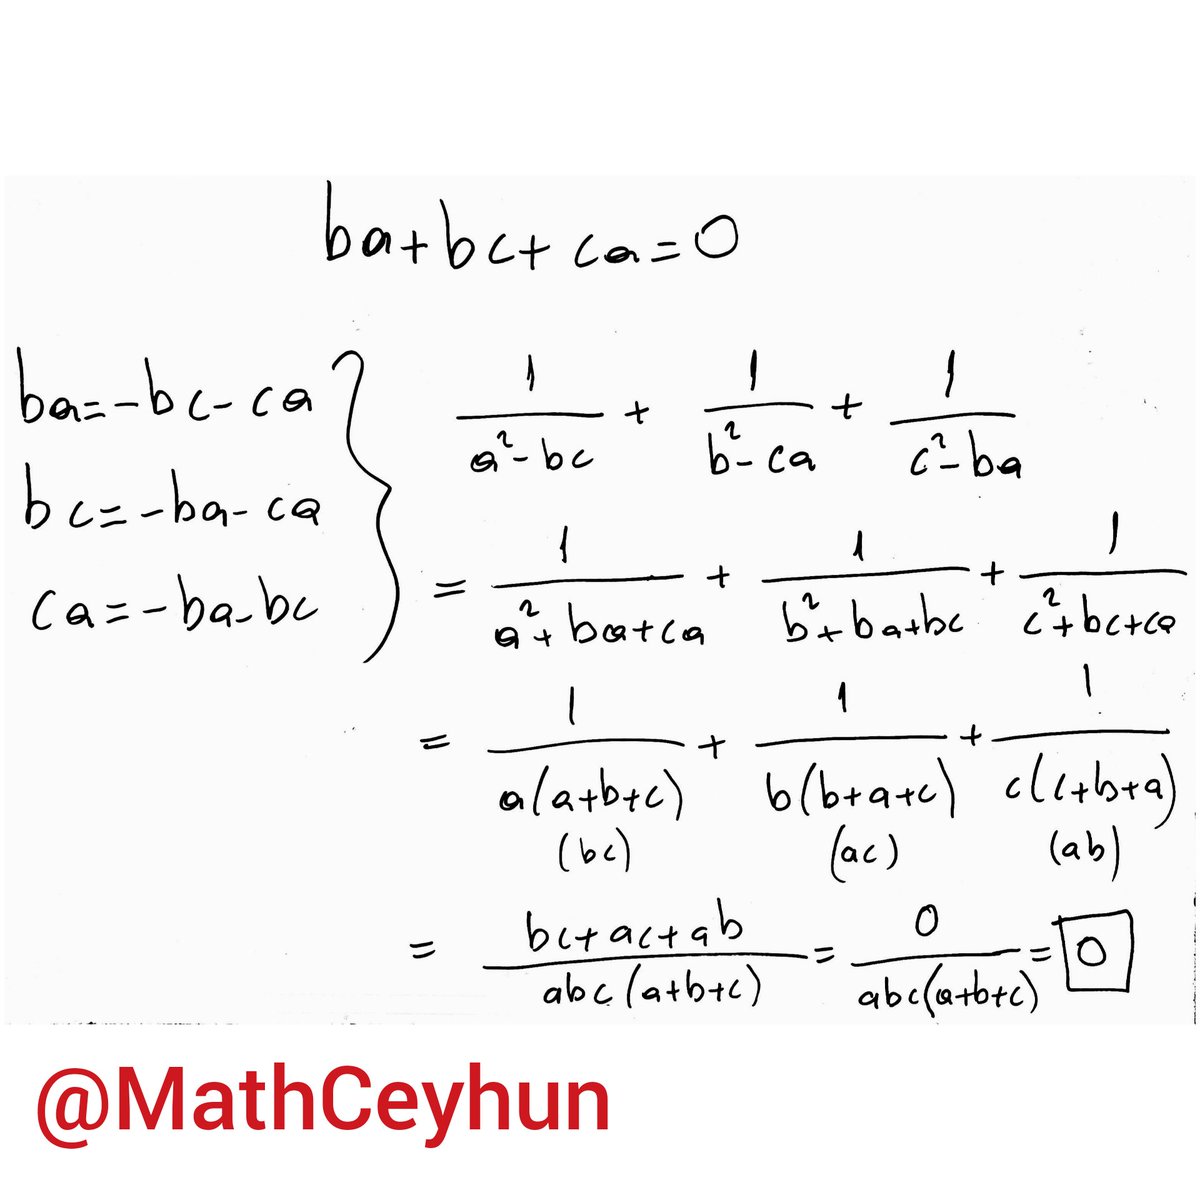 ba+bc+ca=0
ba=-bc-ca
bc=-ba-ca
ca=-ba-bc
1/(a²-bc) + 1/(b²-ca) + 1/(c²-ba)
= 1/(a²+ba+ca) + 1/(b²+ba+bc) + 1/(c²+bc+ca)
= 1/(a(a+b+c)) + 1/(b(b+a+c)) + 1/(c(c+b+a))
(bc) (ac) (ab)
= (bc+ac+ab)/(abc(a+b+c)) = 0/(abc(a+b+c)) = 0
@MathCeyhun